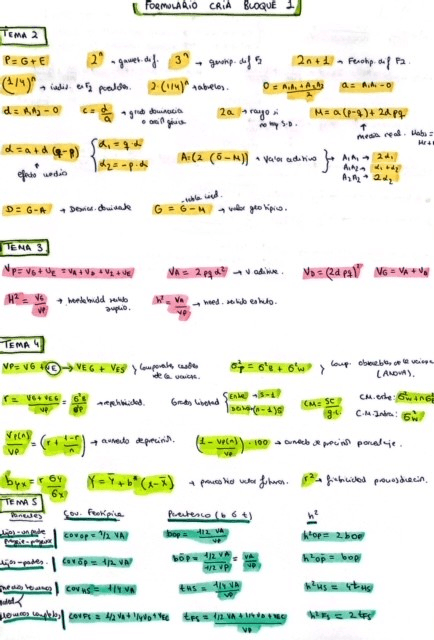 FORMULARIO CRIA BLOQUE 1
TEMA 2
P=G+E 2ⁿ → gamet. dif. 3ⁿ → genotip. dif F2 2n+1 → Fenotip. dif F2.
(1/4)ⁿ → indiv. en F2 2·(1/4)ⁿ → abuelos. O = A₁A₁ + A₂A₂ / 2 a = A₁A₁ - O
d = A₁A₂ - O c = d/a → grado dominancia 2a → rango si M = a(p-q) + 2dpq
media real.
α = a+d(q-p) { α₁ = q·α A = (2 (O-M)) → Valor aditivo } → A₁A₁ → 2α₁
efecto medio α₂ = -p·α A₁A₂ → α₁+α₂
A₂A₂ → 2α₂
D = G-A → Desvia. dominante G = G-M → valor genotípico.
TEMA 3
VP = VG + VE = VA + VD + VI + VE VA = 2pqα² → V aditiva. VD = (2dpq)² VG = VA + VA
H² = VG/VP → heredabilidad sentido amplio. h² = VA/VP → hered. sentido estricto.
TEMA 4
VP = VG + VE → VEG + VES } Componentes causales de la varianza σ²P = σ²B + σ²W } Comp. observables de la varianza (ANOVA).
r = VG + VEG / VP = σ²B / σ²P → repetibilidad. Grados libertad { Entre → s-1 Dentro (n-1)s CM = SC / g.l. C.M. entre: σ²w + nσ²
C.M. Intra: σ²w
VP(n)/VP = (r + 1-r/n) → aumento de precisión. (1 - VP(n)/VP)·100 → aumento de precisión porcentaje.
b yx = r σy/σx Y = Y + b*(x-x) → pronostico valor futuros. r² → fiabilidad
TEMA 5
Parientes Cov. Fenotípica Parentesco (b ó t) h²
Hijos-un padre covOP = 1/2 VA bOP = 1/2 VA / VP h²OP = 2bOP
Hijos-padres. covOP = 1/2 VA bOP = 1/2 VA / 1/2 VP = VA/VP h²OP = bOP
Medios hermanos covHS = 1/4 VA tHS = 1/4 VA / VP h²HS = 4tHS
Hermanos completos covFS = 1/2 VA + 1/4 VD + VEC tFS = 1/2 VA + 1/4 VD + VEC / VP h²FS = 2tFS